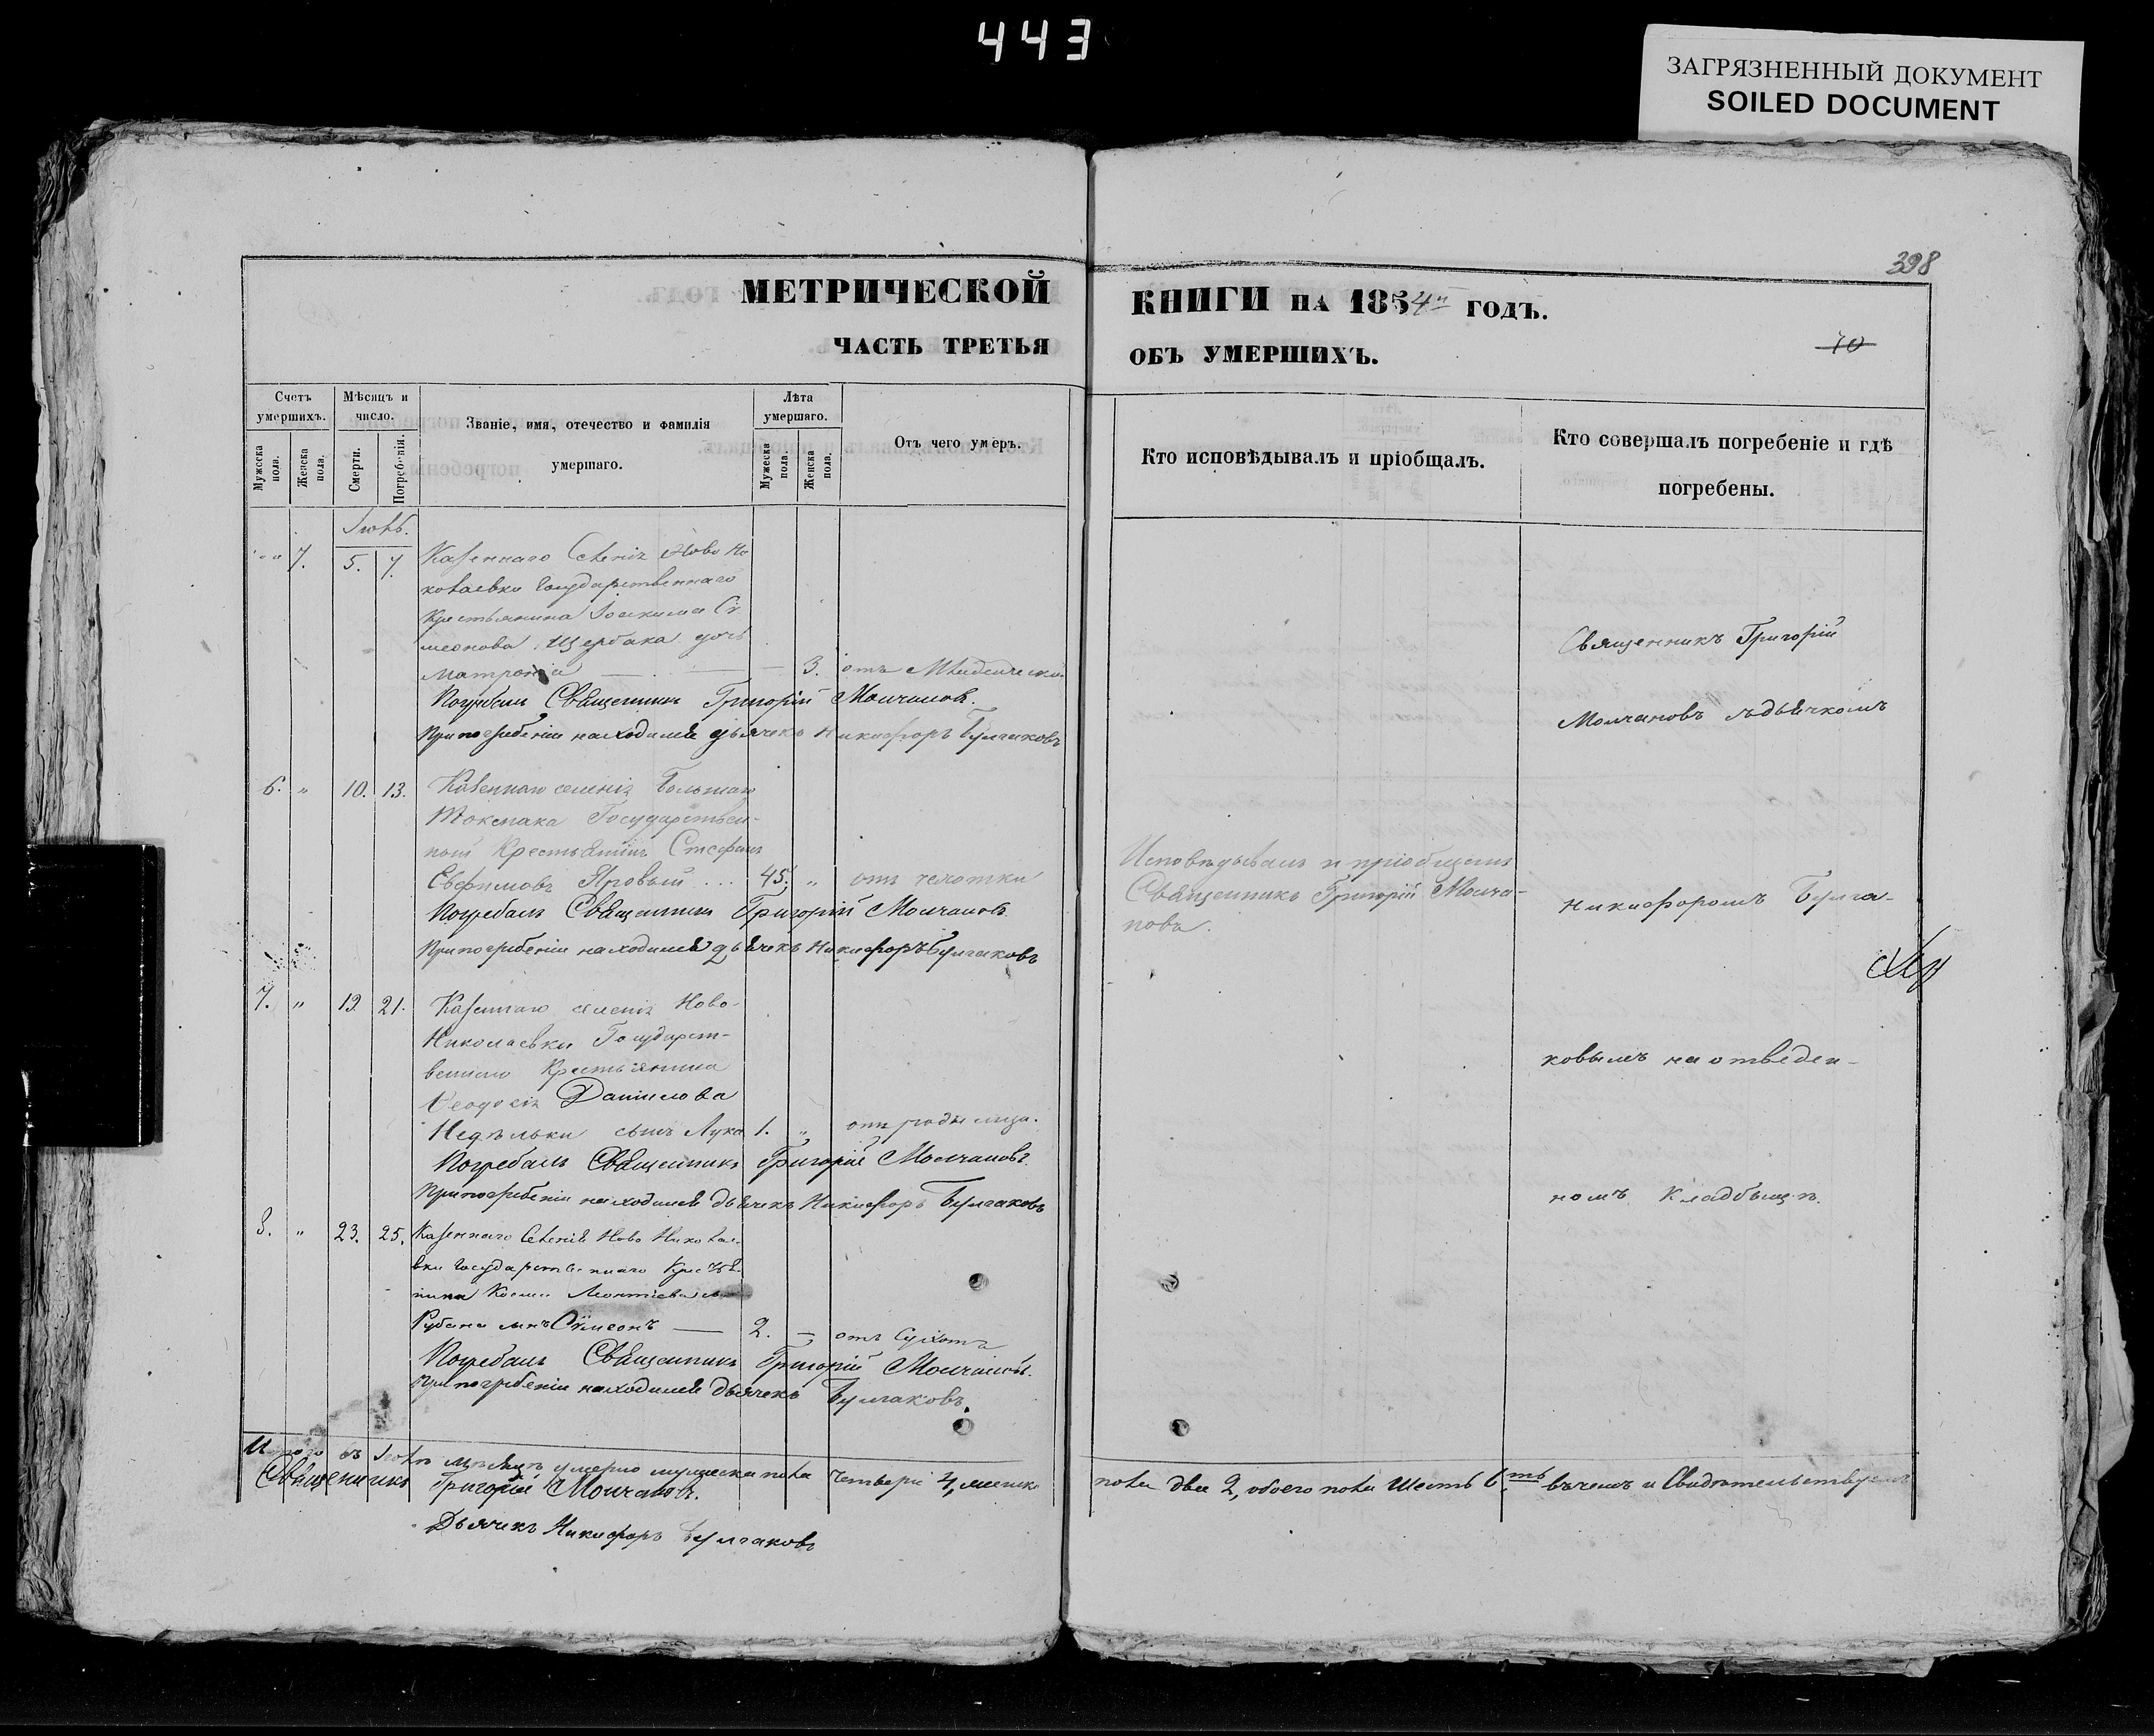 443
ЗАГРЯЗНЕННЫЙ ДОКУМЕНТ
SOILED DOCUMENT
398
МЕТРИЧЕСКОЙ КНИГИ НА 1854 ГОДЪ.
ЧАСТЬ ТРЕТЬЯ ОБЪ УМЕРШИХЪ.
70
Счетъ умершихъ.
Мужеска пола.
Женска пола.
Мѣсяцъ и число.
Смерти.
Погребенія.
Званіе, имя, отечество и фамилія умершаго.
Лѣта умершаго.
Мужеска пола.
Женска пола.
Отъ чего умеръ.
Кто исповѣдывалъ и пріобщалъ.
Кто совершалъ погребеніе и гдѣ погребены.
7. 5. 7. Казеннаго Селенія Ново Ни
колаевки Государственнаго
Крестьянина Іоакима Си
меонова Щербака дочь
Матрона — 3. отъ
Погребалъ Священникъ Григорій Молчановъ.
При погребеніи находился дьячекъ Никифоръ Булгаковъ
6. " 10. 13. Казеннаго селенія Большаго
Токмака Государствен-
ный Крестьянинъ Стефанъ
Евфимовъ Яровый ... 45. " отъ чахотки
Погребалъ Священникъ Григорій Молчановъ.
При погребеніи находился дьячекъ Никифоръ Булгаковъ
7. " 19. 21. Казеннаго селенія Ново-
Николаевки Государст-
веннаго Крестьянина
Ѳеодосія Даниилова
Недѣльки сынъ Лука 1. "
Погребалъ Священникъ Григорій Молчановъ.
При погребеніи находился дьячекъ Никифоръ Булгаковъ
8. " 23. 25. Казеннаго Селенія Ново Никола-
евки Государственнаго Крестья-
нина Космы Леонтіева
Рубана сынъ Сѵмеонъ — 2. — отъ Сухотъ
Погребалъ Священникъ Григорій Молчановъ.
При погребеніи находился дьячекъ Булгаковъ.
Исповѣдывалъ и пріобщалъ
Священникъ Григорій Молча-
новъ.
Священникъ Григорій
Молчановъ съ дьячкомъ
Никифоромъ Булга-
ковымъ на отведен-
номъ Кладбищѣ.
Итого въ мѣсяцѣ умерло мужеска пола четверо 4, женска пола две 2, обоего пола Шесть 6.ть въ чемъ и Свидѣтельствуемъ
Священникъ Григорій Молчановъ.
Дьячекъ Никифоръ Булгаковъ